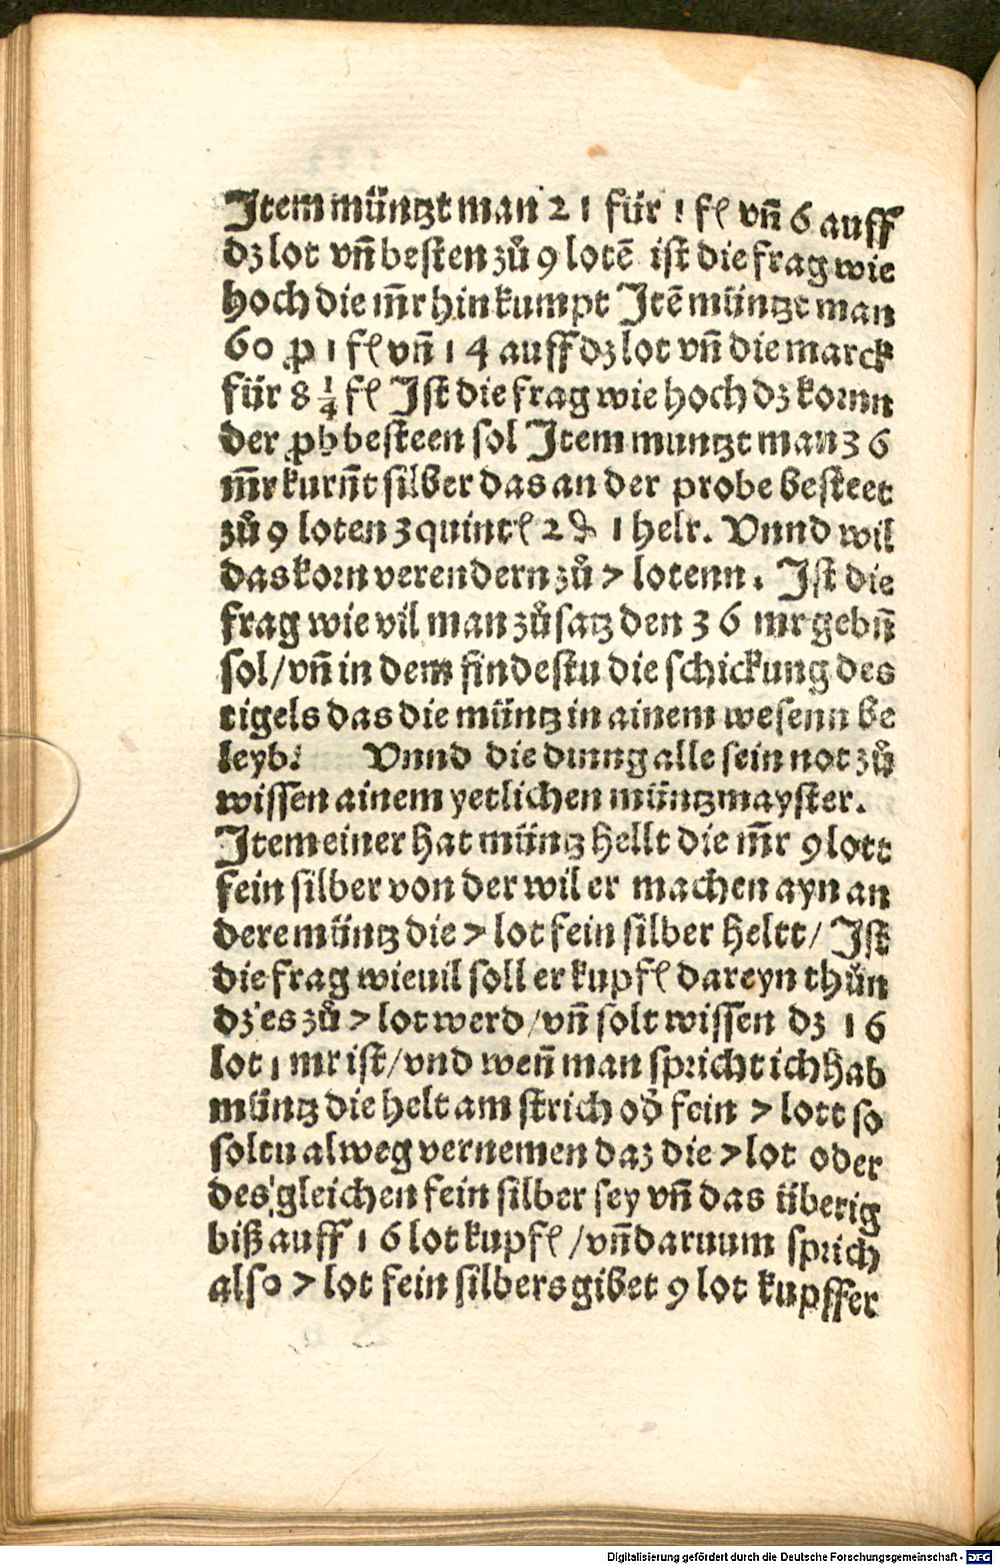 Jtem müntzt man 21 für 1 fl vñ 6 auff
dz lot vñ besten zů 9 lotē ist die frag wie
hoch die m̄r hin kumpt Jtē müntzt man
60 ꝓ 1 fl vñ 14 auff dz lot vñ die marck
für 8 1/4 fl Jst die frag wie hoch dz kornn
der ꝓb besteen sol Jtem muntzt man 36
m̄r kurñt silber das an der probe besteet
zů 9 loten 3 quintl 2 ₰ 1 helr. Vnnd wil
das korn verendern zů 7 lotenn. Jst die
frag wie vil man zůsatz den 36 mr gebñ
sol/vñ in dem findestu die schickung des
tigels das die müntz in ainem wesenn be
leyb: Vnnd die dinng alle sein not zů
wissen ainem yetlichen müntzmayster.
Jtem einer hat müntz hellt die m̄r 9 lott
fein silber von der wil er machen ayn an
dere müntz die 7 lot fein silber heltt/ Jst
die frag wieuil soll er kupfl dareyn thůn
dz es zů 7 lot werd/vñ solt wissen dz 16
lot 1 mr ist/vnd weñ man spricht ich hab
müntz die helt am strich od̓ fein 7 lott so
soltu alweg vernemen daz die 7 lot oder
des gleichen fein silber sey vñ das überig
biß auff 16 lot kupfl /vñ daruum sprich
also 7 lot fein silbers gibet 9 lot kupffer
Digitalisierung gefördert durch die Deutsche Forschungsgemeinschaft - DFG